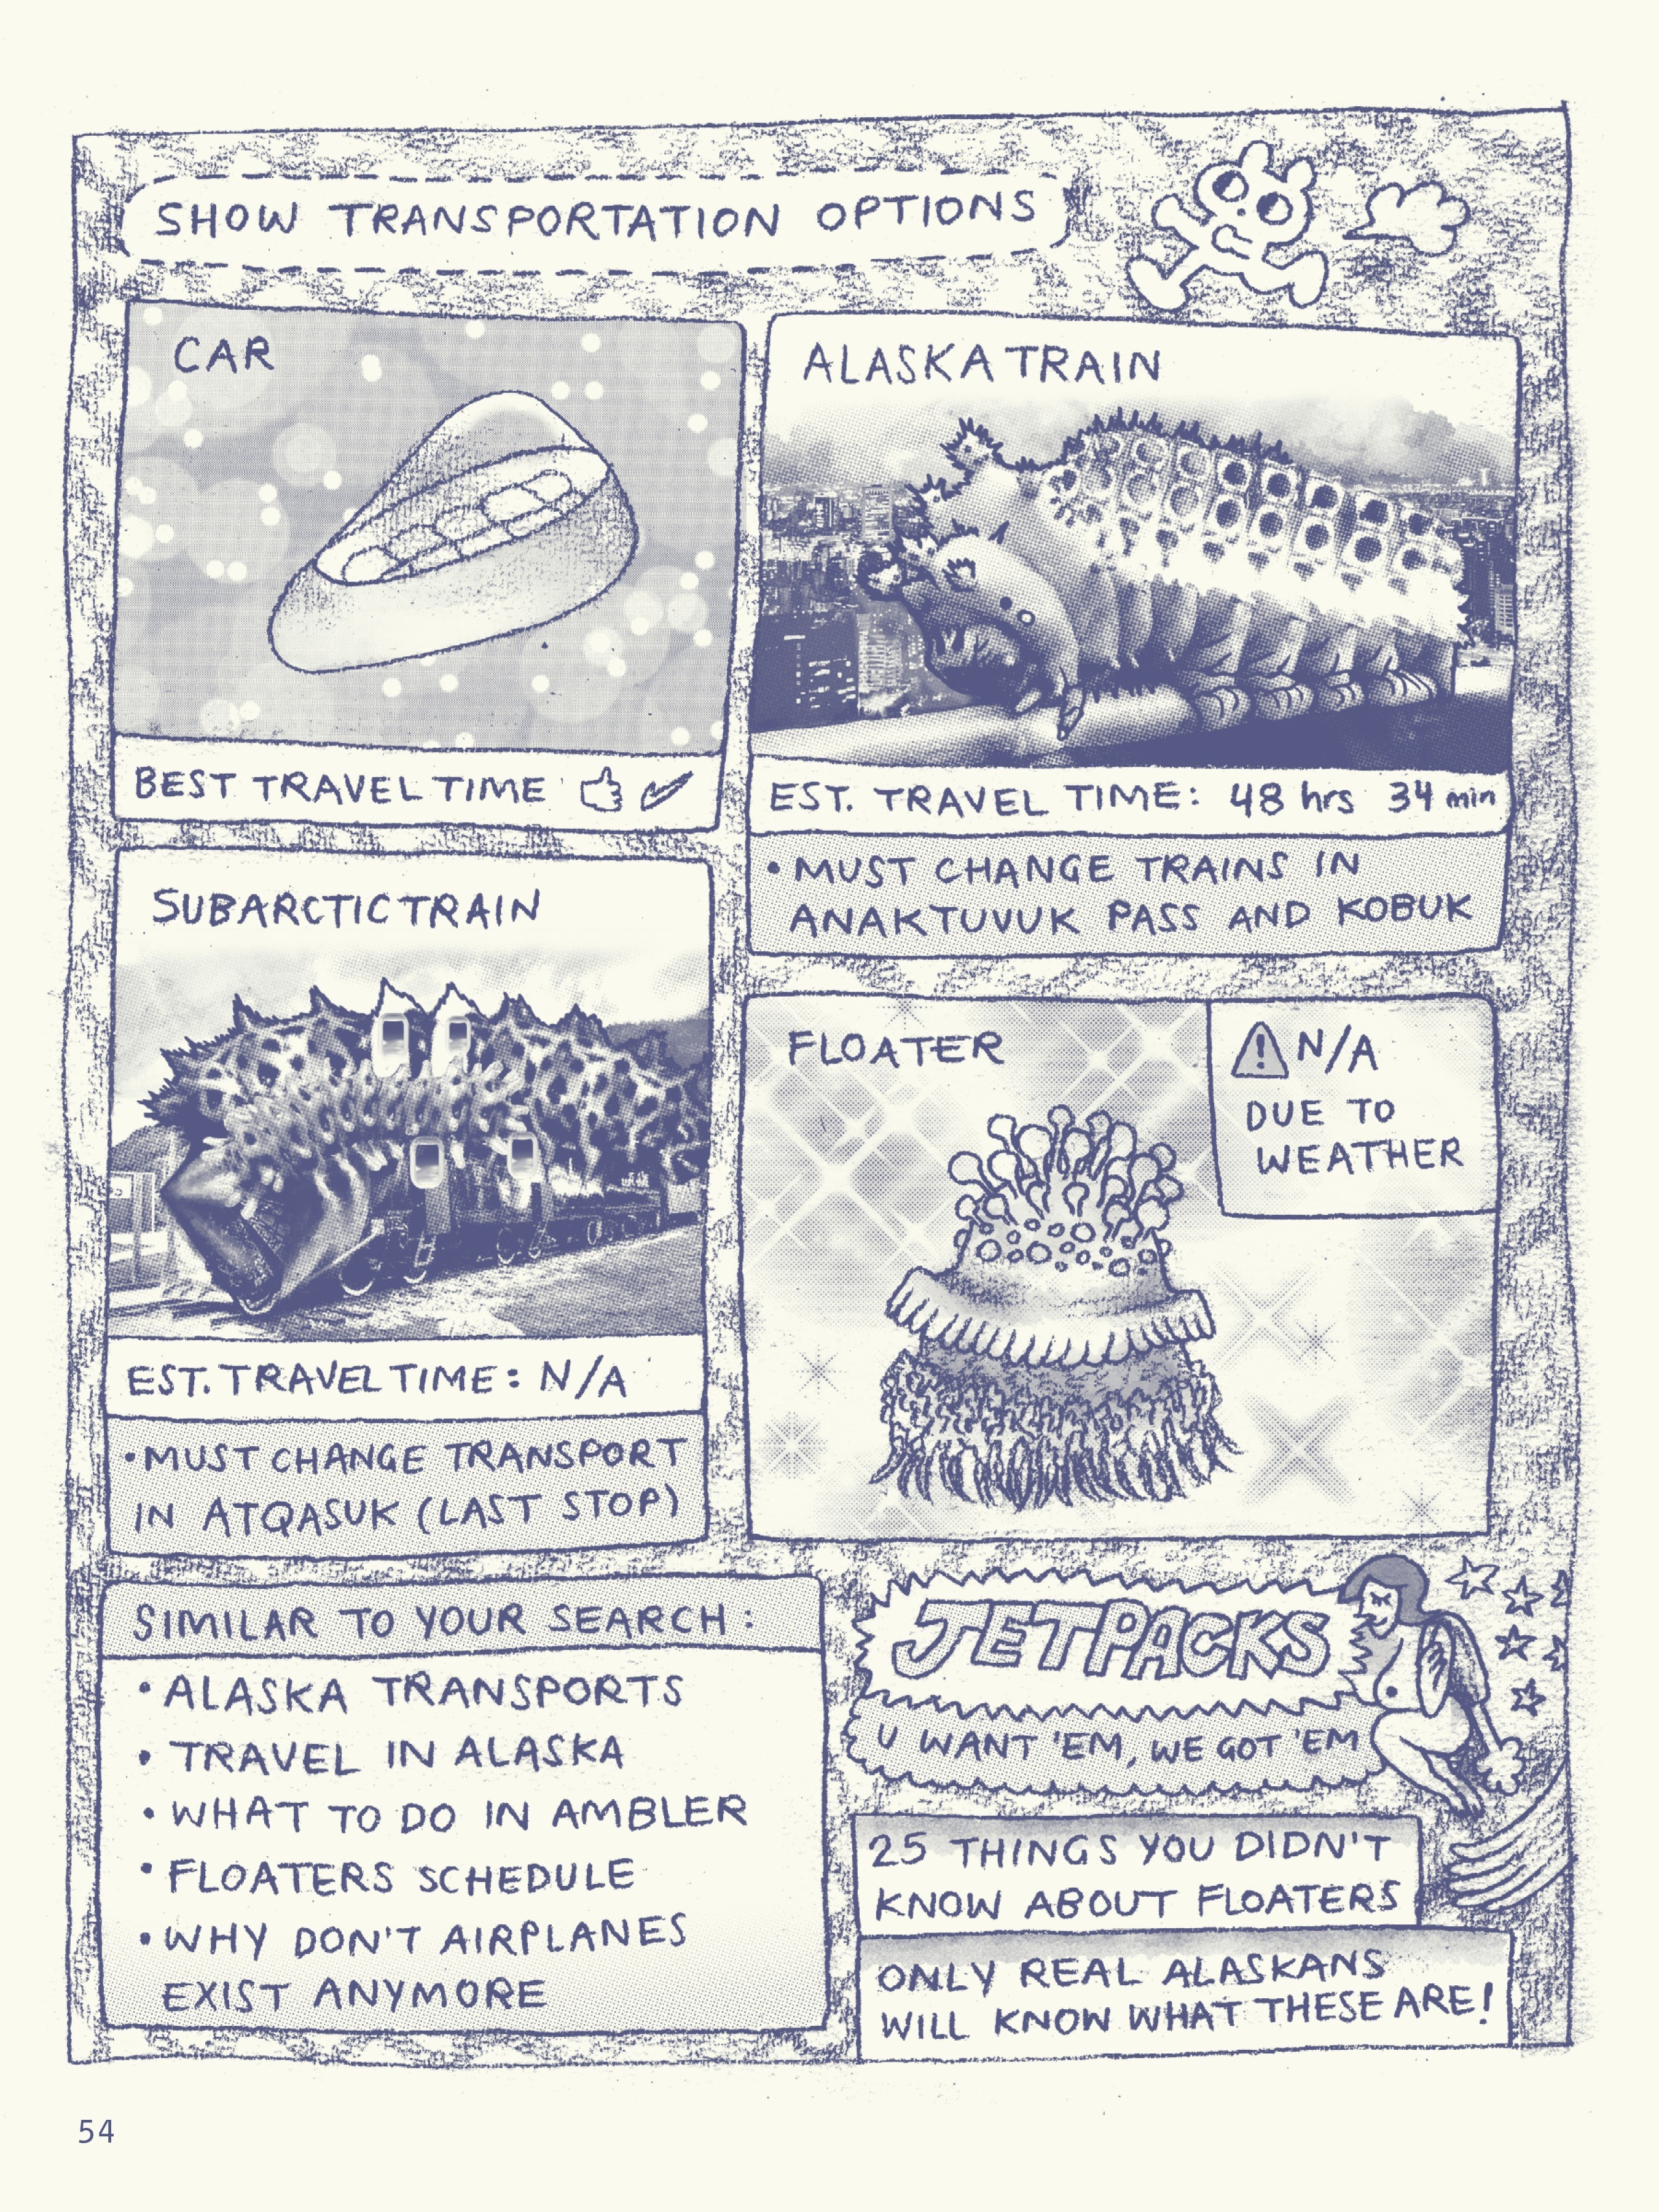 SHOW TRANSPORTATION OPTIONS
CAR
BEST TRAVEL TIME
ALASKA TRAIN
EST. TRAVEL TIME: 48 hrs 34 min
• MUST CHANGE TRAINS IN
ANAKTUVUK PASS AND KOBUK
SUBARCTIC TRAIN
EST. TRAVEL TIME: N/A
• MUST CHANGE TRANSPORT
IN ATQASUK (LAST STOP)
FLOATER
N/A
DUE TO
WEATHER
SIMILAR TO YOUR SEARCH:
• ALASKA TRANSPORTS
• TRAVEL IN ALASKA
• WHAT TO DO IN AMBLER
• FLOATERS SCHEDULE
• WHY DON'T AIRPLANES
EXIST ANYMORE
JETPACKS
U WANT 'EM, WE GOT 'EM
25 THINGS YOU DIDN'T
KNOW ABOUT FLOATERS
ONLY REAL ALASKANS
WILL KNOW WHAT THESE ARE!
54